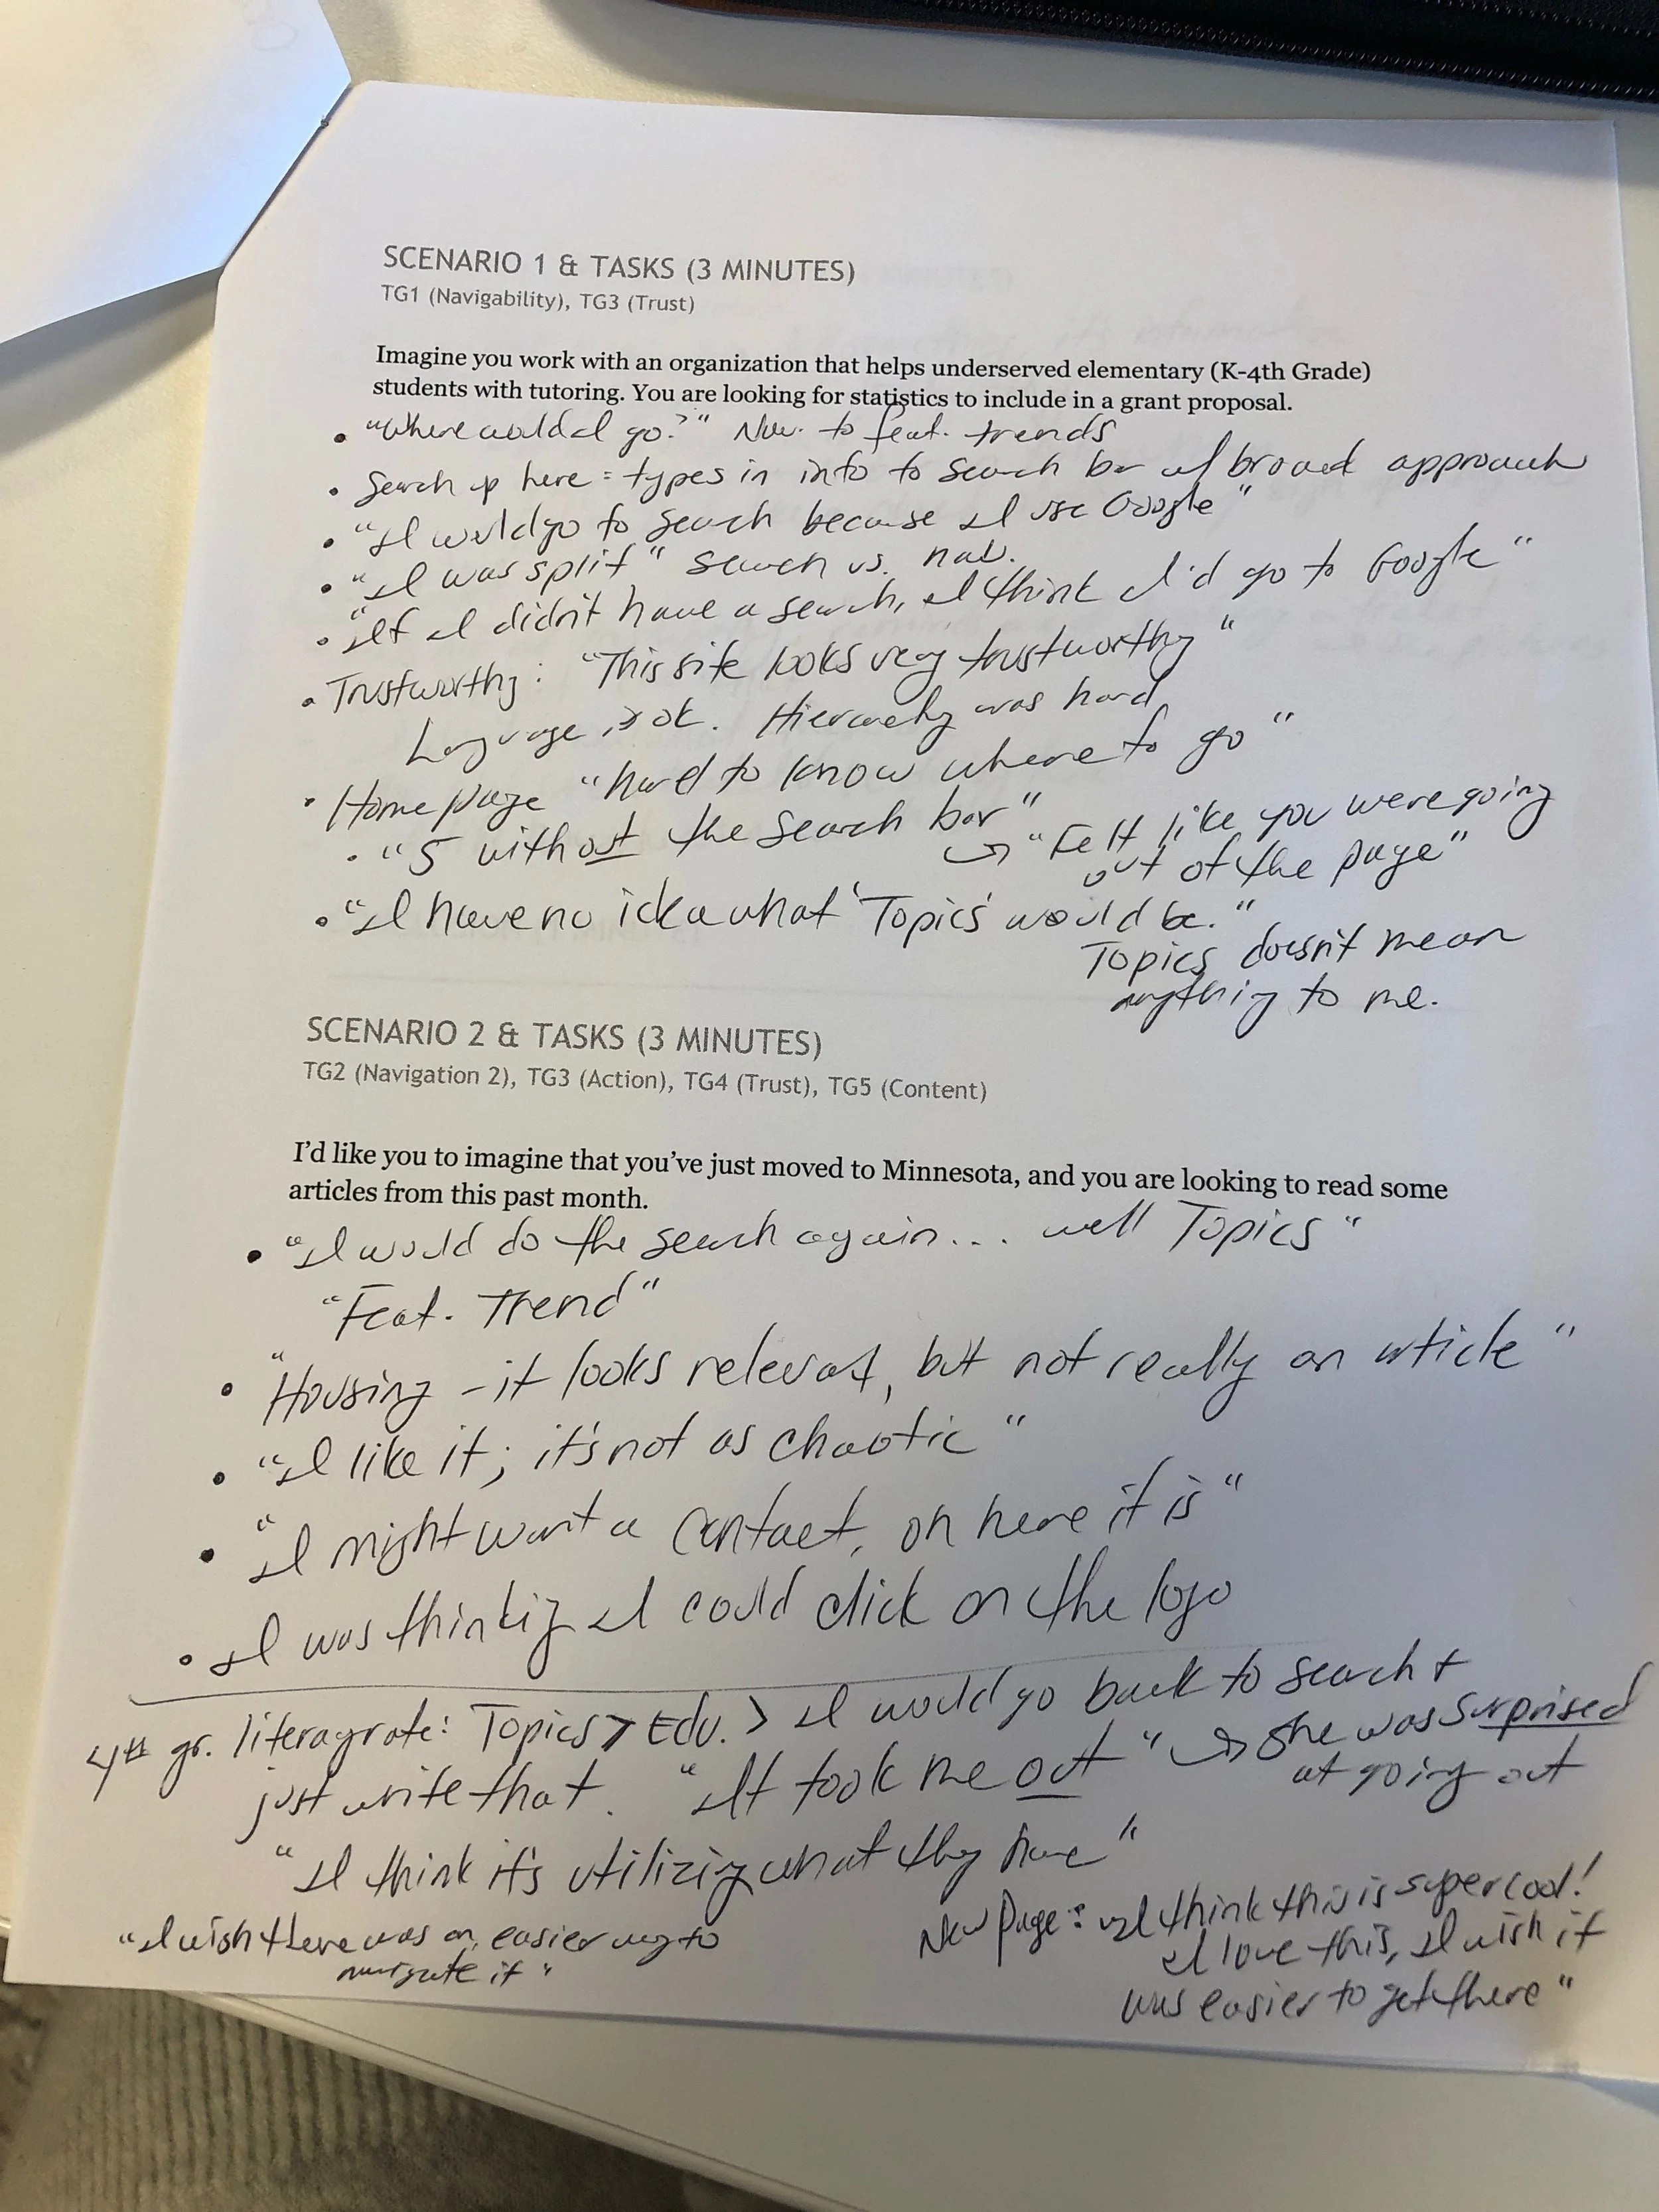 SCENARIO 1 & TASKS (3 MINUTES)
TG1 (Navigability), TG3 (Trust)
Imagine you work with an organization that helps underserved elementary (K-4th Grade)
students with tutoring. You are looking for statistics to include in a grant proposal.
• "Where would I go?" Nav. to feat. trends
• Search up here = types in info to search bar w/ broad approach
• "I would go to search because I use Google"
• "I was split" search vs. nav.
• "If I didn't have a search, I think I'd go to Google"
• Trustworthy: "This site looks very trustworthy"
Language is ok. Hierarchy was hard
• Home page "hard to know where to go"
• "5 without the search bar"
→ "Felt like you were going
out of the page"
• "I have no idea what 'Topics' would be."
Topics doesn't mean
anything to me.
SCENARIO 2 & TASKS (3 MINUTES)
TG2 (Navigation 2), TG3 (Action), TG4 (Trust), TG5 (Content)
I'd like you to imagine that you've just moved to Minnesota, and you are looking to read some
articles from this past month.
• "I would do the search again... well Topics"
"Feat. Trend"
• "Housing - it looks relevant, but not really an article"
• "I like it; it's not as chaotic"
• "I might want a contact, oh here it is"
• I was thinking I could click on the logo
4th gr. literacy rate: Topics > Edu. > I would go back to search +
just write that. "It took me out" → She was surprised
at going out
"I think it's utilizing what they have"
"I wish there was an easier way to
navigate it"
New Page: "I think this is super cool!
I love this, I wish it
was easier to get there"